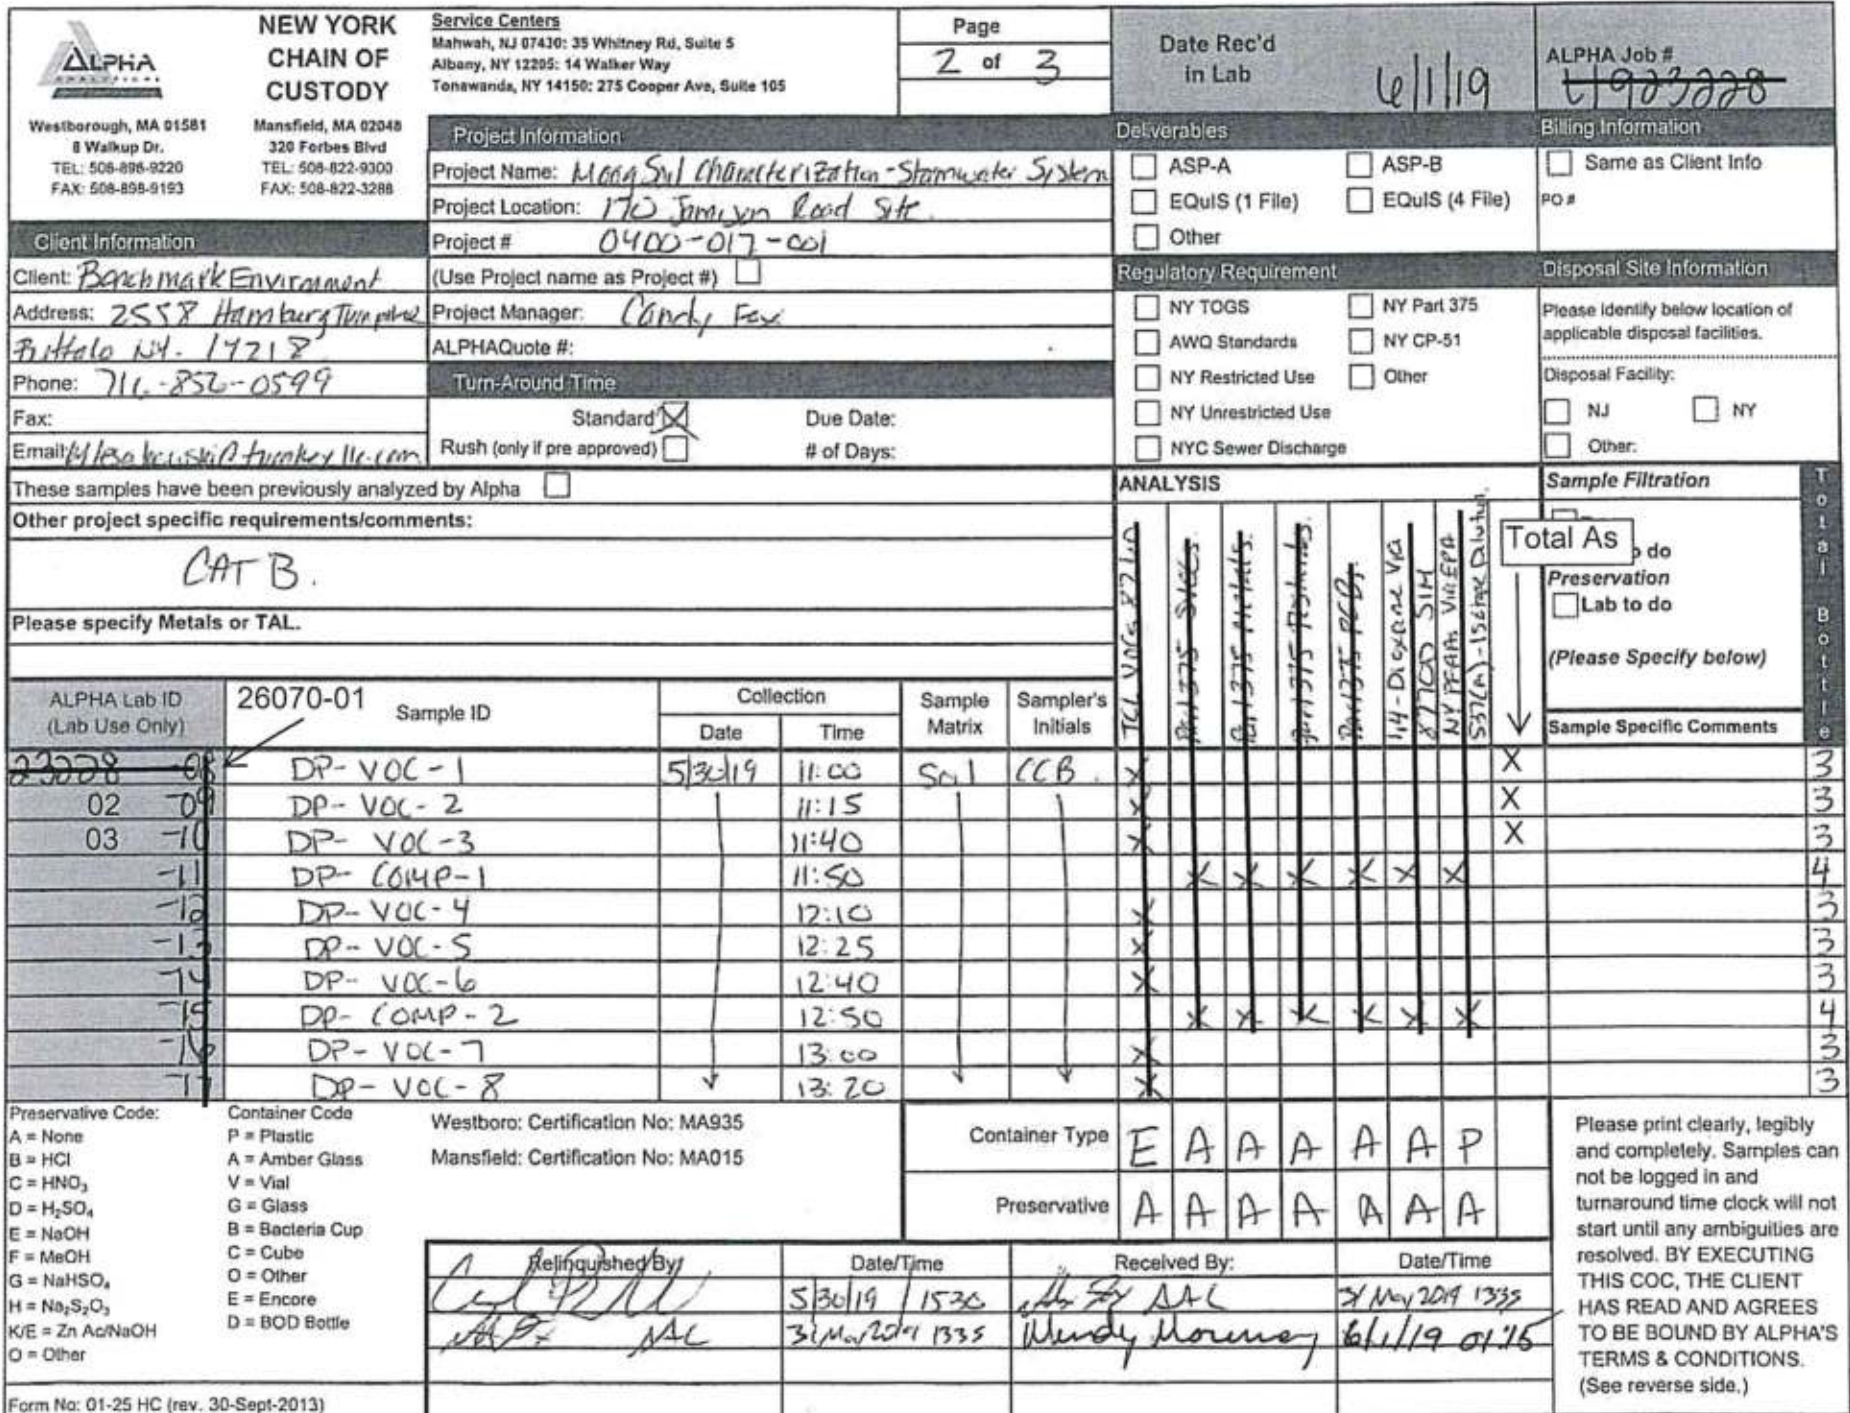 ALPHA
ANALYTICAL
NEW YORK
CHAIN OF
CUSTODY
Westborough, MA 01581
8 Walkup Dr.
TEL: 508-898-9220
FAX: 508-898-9193
Mansfield, MA 02048
320 Forbes Blvd
TEL: 508-822-9300
FAX: 508-822-3288
Service Centers
Mahwah, NJ 07430: 35 Whitney Rd, Suite 5
Albany, NY 12205: 14 Walker Way
Tonawanda, NY 14150: 275 Cooper Ave, Suite 105
Page
2 of 3
Date Rec'd
in Lab
6/1/19
ALPHA Job #
L1923228
Project Information
Project Name: Moog Soil Characterization - Stormwater System
Project Location: 170 Jamison Road Site
Project # 0400-017-001
(Use Project name as Project #)
Project Manager: Candy Fox
ALPHAQuote #:
Turn-Around Time
Standard X Due Date:
Rush (only if pre approved) # of Days:
Client Information
Client: Benchmark Environment
Address: 2558 Hamburg Turnpike
Buffalo NY. 14218
Phone: 716-856-0599
Fax:
Email:
Deliverables
ASP-A ASP-B
EQuIS (1 File) EQuIS (4 File)
Other
Regulatory Requirement
NY TOGS NY Part 375
AWQ Standards NY CP-51
NY Restricted Use Other
NY Unrestricted Use
NYC Sewer Discharge
Billing Information
Same as Client Info
PO #
Disposal Site Information
Please identify below location of
applicable disposal facilities.
Disposal Facility:
NJ NY
Other:
These samples have been previously analyzed by Alpha
Other project specific requirements/comments:
CAT B.
Please specify Metals or TAL.
ANALYSIS
TCL VOCs 8260
Part 375 SVOCs.
Part 375 Metals.
Part 375 Pesticides.
Part 375 PCBs.
1,4-Dioxane Via
8270D SIM
NY PFAAs Via EPA
537(m)-Isotope Dilution.
Total As
Sample Filtration
to do
Preservation
Lab to do
(Please Specify below)
Sample Specific Comments
Total Bottle
ALPHA Lab ID
(Lab Use Only)
26070-01
Sample ID
Collection
Date Time
Sample
Matrix
Sampler's
Initials
23228 -08 DP-VOC-1 5/30/19 11:00 Soil CCB X X 3
02 -09 DP-VOC-2 11:15 X X 3
03 -10 DP-VOC-3 11:40 X X 3
-11 DP-COMP-1 11:50 X X X X X X 4
-12 DP-VOC-4 12:10 X 3
-13 DP-VOC-5 12:25 X 3
-14 DP-VOC-6 12:40 X 3
-15 DP-COMP-2 12:50 X X X X X X 4
-16 DP-VOC-7 13:00 X 3
-17 DP-VOC-8 13:20 X 3
Preservative Code:
A = None
B = HCl
C = HNO3
D = H2SO4
E = NaOH
F = MeOH
G = NaHSO4
H = Na2S2O3
K/E = Zn Ac/NaOH
O = Other
Container Code
P = Plastic
A = Amber Glass
V = Vial
G = Glass
B = Bacteria Cup
C = Cube
O = Other
E = Encore
D = BOD Bottle
Westboro: Certification No: MA935
Mansfield: Certification No: MA015
Container Type E A A A A A P
Preservative A A A A A A A
Relinquished By: Date/Time Received By: Date/Time
5/30/19 1530 AAL 31 May 2019 1335
AAL 31 May 2019 1335 Wendy 6/1/19 01:15
Please print clearly, legibly
and completely. Samples can
not be logged in and
turnaround time clock will not
start until any ambiguities are
resolved. BY EXECUTING
THIS COC, THE CLIENT
HAS READ AND AGREES
TO BE BOUND BY ALPHA'S
TERMS & CONDITIONS.
(See reverse side.)
Form No: 01-25 HC (rev. 30-Sept-2013)